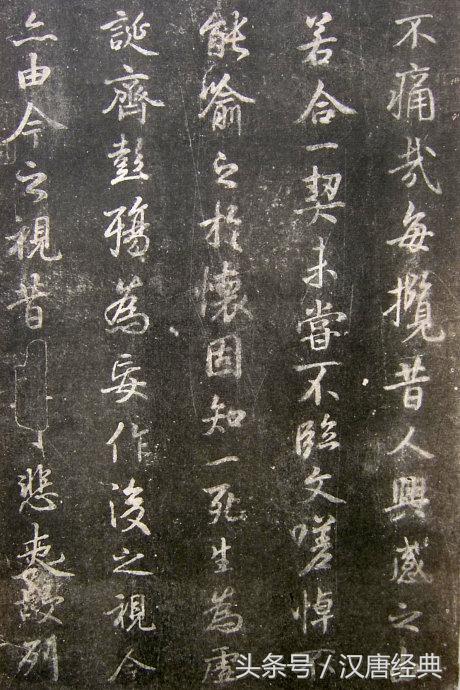 不痛哉每攬昔人興感之由
若合一契未嘗不臨文嗟悼不
能喻之於懷固知一死生為虛
誕齊彭殤為妄作後之視今
亦由今之視昔悲夫故列
头条号／汉唐经典